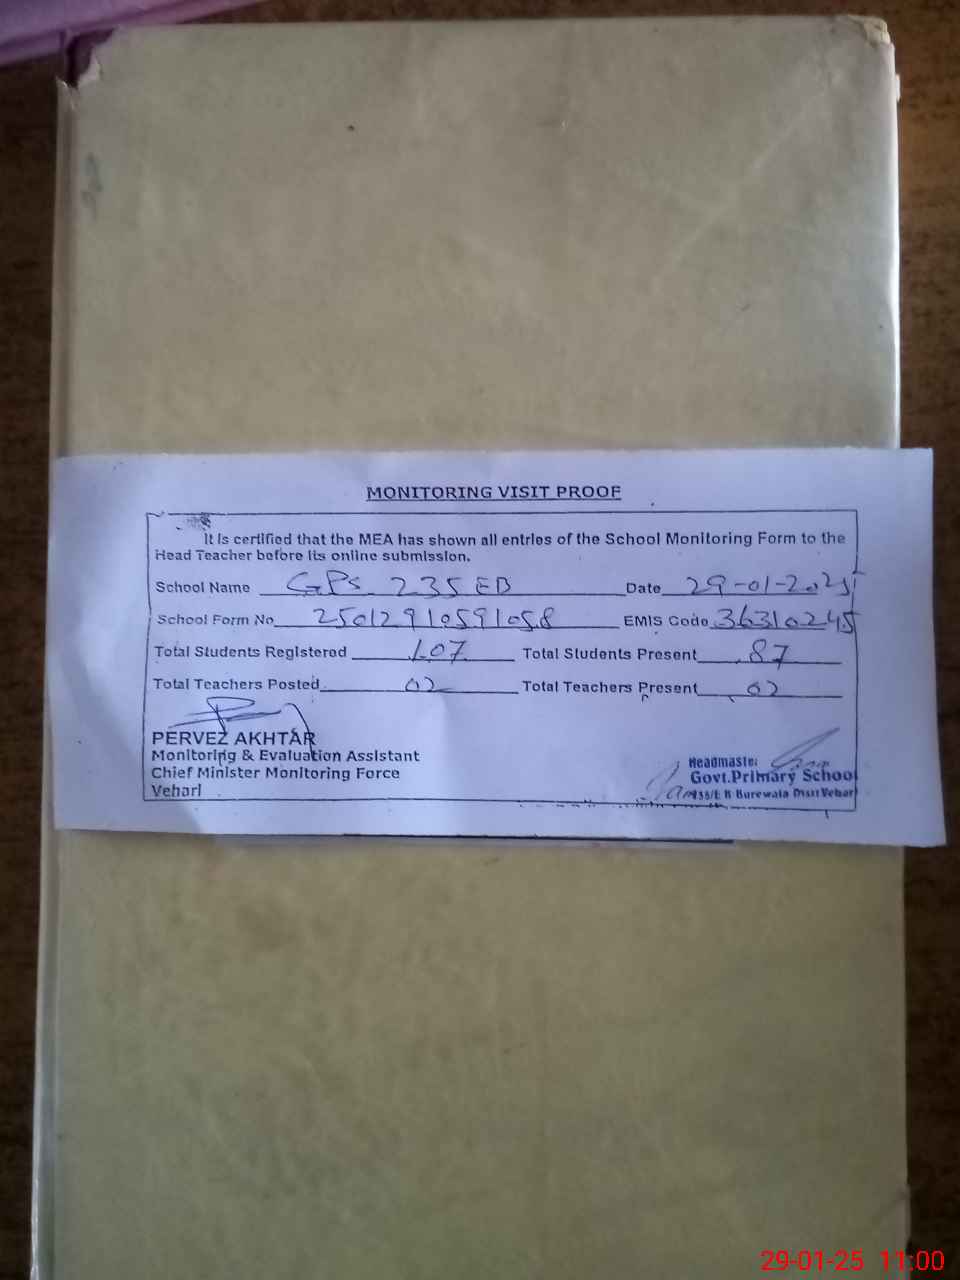 MONITORING VISIT PROOF
It is certified that the MEA has shown all entries of the School Monitoring Form to the
Head Teacher before its online submission.
School Name GPS 235 EB Date 29-01-2025
School Form No 25012910591058 EMIS Code 36310245
Total Students Registered 107 Total Students Present 87
Total Teachers Posted 02 Total Teachers Present 02
PERVEZ AKHTAR
Monitoring & Evaluation Assistant
Chief Minister Monitoring Force
Vehari
Headmaster
Govt.Primary School
235/E B Burewala Distt Vehari
29-01-25 11:00